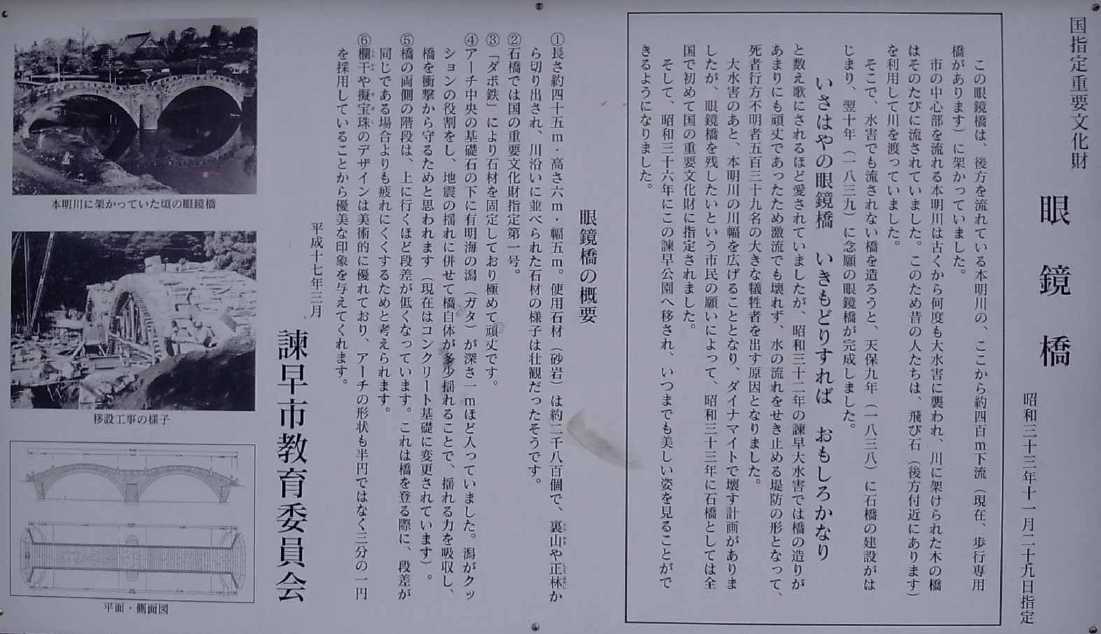 国指定重要文化財
眼鏡橋
昭和三十三年十一月二十九日指定
この眼鏡橋は、後方を流れている本明川の、ここから約四百m下流（現在、歩行専用
橋があります）に架かっていました。
市の中心部を流れる本明川は古くから何度も大水害に襲われ、川に架けられた木の橋
はそのたびに流されていました。このため昔の人たちは、飛び石（後方付近にあります）
を利用して川を渡っていました。
そこで、水害でも流されない橋を造ろうと、天保九年（一八三八）に石橋の建設がは
じまり、翌十年（一八三九）に念願の眼鏡橋が完成しました。
いさはやの眼鏡橋　いきもどりすれば　おもしろかなり
と数え歌にされるほど愛されていましたが、昭和三十二年の諫早大水害では橋の造りが
あまりにも頑丈であったため激流でも壊れず、水の流れをせき止める堤防の形となって、
死者行方不明者五百三十九名の大きな犠牲者を出す原因となりました。
大水害のあと、本明川の川幅を広げることとなり、ダイナマイトで壊す計画がありま
したが、眼鏡橋を残したいという市民の願いによって、昭和三十三年に石橋としては全
国で初めて国の重要文化財に指定されました。
そして、昭和三十六年にこの諫早公園へ移され、いつまでも美しい姿を見ることがで
きるようになりました。
眼鏡橋の概要
①長さ約四十五m・高さ六m・幅五m。使用石材（砂岩）は約二千八百個で、裏山や正林か
ら切り出され、川沿いに並べられた石材の様子は壮観だったそうです。
②石橋では国の重要文化財指定第一号。
③「ダボ鉄」により石材を固定しており極めて頑丈です。
④アーチ中央の基礎石の下に有明海の潟（ガタ）が深さ一mほど入っていました。潟がクッ
ションの役割をし、地震の揺れに併せて橋自体が多少揺れることで、揺れる力を吸収し、
橋を衝撃から守るためと思われます（現在はコンクリート基礎に変更されています）。
⑤橋の両側の階段は、上に行くほど段差が低くなっています。これは橋を登る際に、段差が
同じである場合よりも疲れにくくするためと考えられます。
⑥欄干や擬宝珠のデザインは美術的に優れており、アーチの形状も半円ではなく三分の一円
を採用していることから優美な印象を与えてくれます。
平成十七年三月
諫早市教育委員会
本明川に架かっていた頃の眼鏡橋
移設工事の様子
平面・側面図